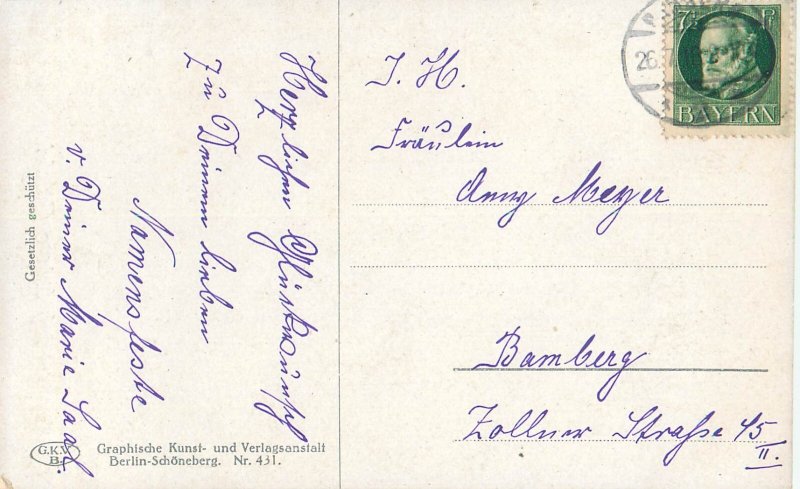 Herzlichen Glückwunsch
zu Deinem lieben
Namensfeste
v. Deiner Marie Saal.
Gesetzlich geschützt
G.K.V.
B.
Graphische Kunst- und Verlagsanstalt
Berlin-Schöneberg. Nr. 431.
J. H.
Fräulein
Anny Meyer
Bamberg
Zollner Straße 45
II.
7½ Pf
BAYERN
26.